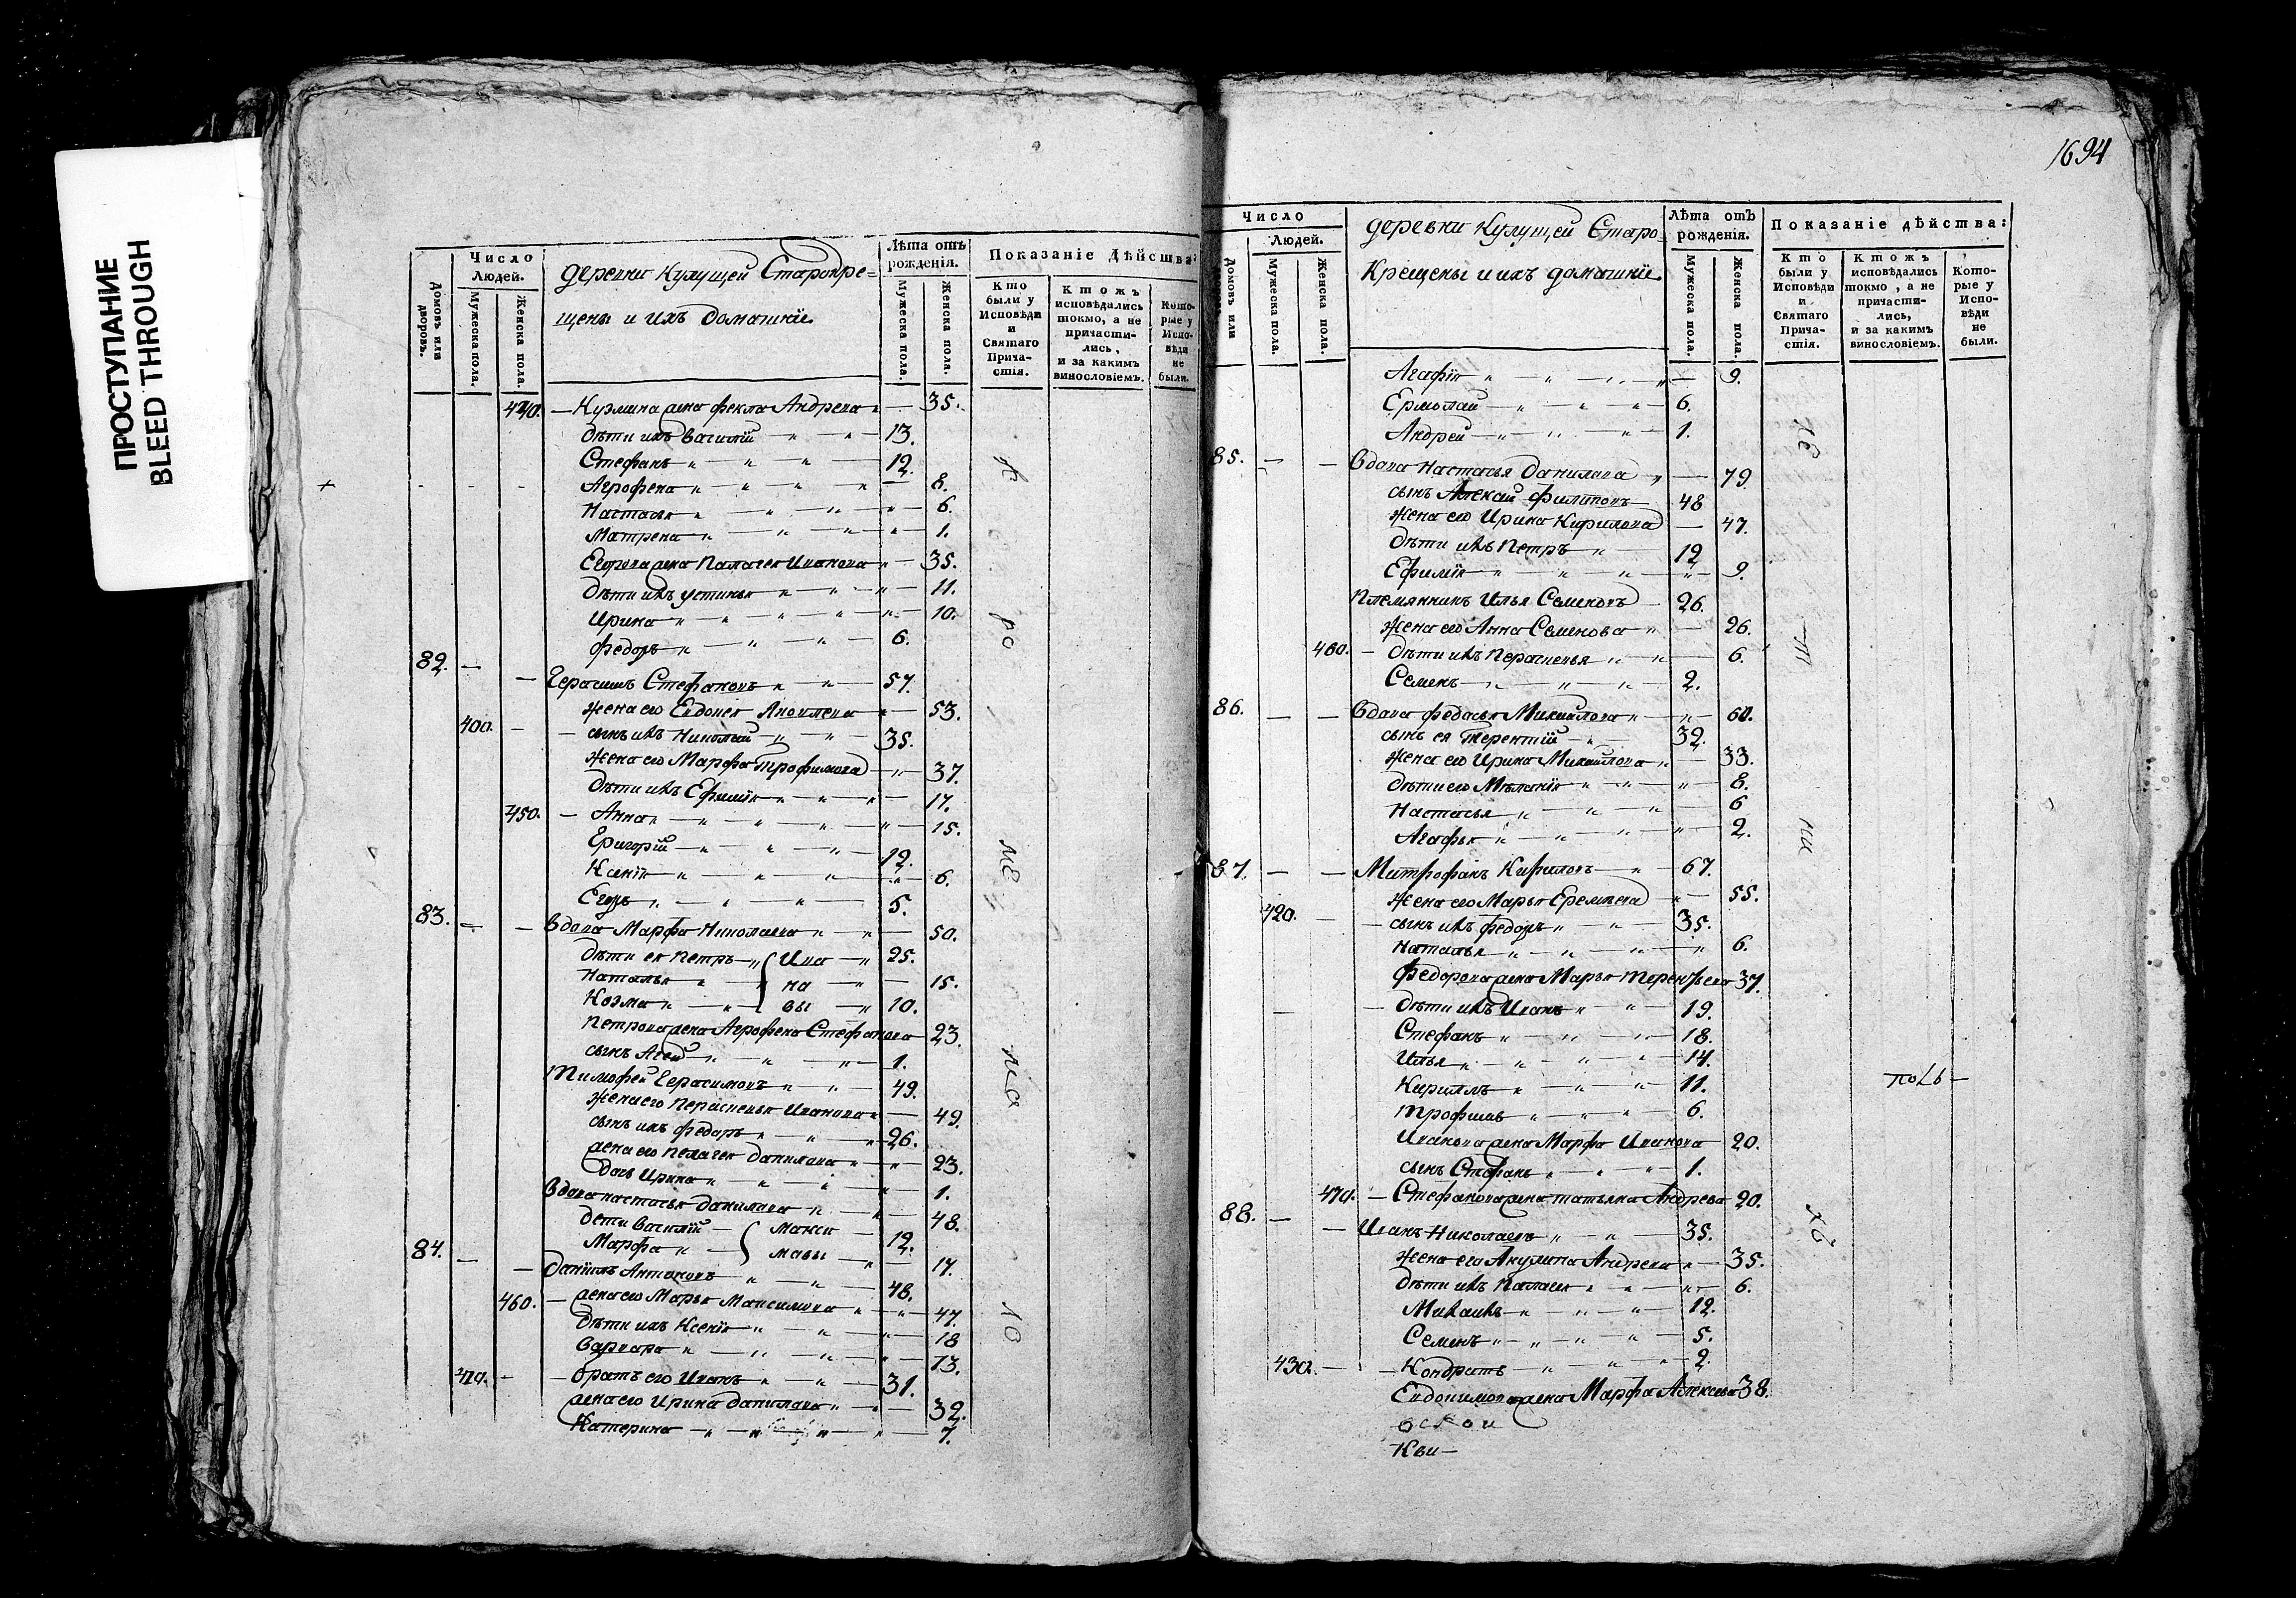 ПРОСТУПАНИЕ
BLEED THROUGH
Число
Людей.
Домовъ или дворовъ.
Мужеска пола.
Женска пола.
деревни Кулущей Старокре=
щены и ихъ домашнїе
Лѣта отъ рожденїя.
Мужеска пола.
Женска пола.
Показанїе Дѣйства:
Кто были у Исповѣди и Святаго Прича-стїя.
Ктожъ исповѣдались токмо, а не причасти-лись, и за какимъ винословїемъ.
Кото-рые у Испо-вѣди не были.
440. — Кузмина жена Фекла Андреева — 35.
Дѣти ихъ Василїй 13.
Стефанъ 12.
Агрофена 8.
Настасья 6.
Матрена 1.
Егорова жена Палагея Иванова 35.
Дѣти ихъ Устинья 11.
Ирина 10.
Федоръ 6.
82. — — Герасимъ Стефановъ 57.
Жена его Евдокея Яковлева 53.
400. — сынъ ихъ Николай 35.
Жена его Марфа Трофимова 37.
Дѣти ихъ Ефимїя 17.
450. — Анна 15.
Григорїй 12.
Ксенїя 6.
Егоръ 5.
83. — — Вдова Марфа Николаева 50.
Дѣти ея Петръ Ива 25.
Наталья на 15.
Козма вы 10.
Петрова жена Агрофена Стефанова 23.
сынъ Агей 1.
Тимофей Герасимовъ 49.
Жена его Перасковья Иванова 49.
сынъ ихъ Федоръ 26.
жена его Пелагея Данилова 23.
дочь Ирина 1.
Вдова Настасья Данилова 48.
дети Василїй Макси 12.
Марфа мавы 17.
84. — — Данїилъ Антоновъ 48.
460. — жена его Марья Максимова 47.
Дѣти ихъ Ксенїя 18
Варвара 13.
410. — — братъ его Иванъ 31.
жена его Ирина Данилова 32.
Катерина 7.
1694
Число
Людей.
Домовъ или
Мужеска пола.
Женска пола.
деревни Кулущей Старо
Крещены и ихъ домашнїе
Лѣта отъ рожденїя.
Мужеска пола.
Женска пола.
Показанїе дѣйства:
Кто были у Исповѣди и Святаго Прича-стїя.
Ктожъ исповѣдались токмо, а не причасти-лись, и за какимъ винословїемъ.
Кото-рые у Испо-вѣди не были.
Агафїя 9.
Ермолай 6.
Андрей 1.
85. — — Вдова Настасья Данилова 79
сынъ Алексїй Филиповъ 48
Жена его Ирина Кирилова 47.
Дѣти ихъ Петръ 12
Ефимїя 9.
Племянникъ Илья Семеновъ 26.
Жена его Анна Семенова 26.
480. — Дѣти ихъ Перасковья 6.
Семенъ 2.
86. — — Вдова Федосья Михайлова 60.
сынъ ея Терентїй 32.
Жена его Ирина Михайлова 33.
Дѣти его Меланїя 8.
Настасья 6
Агафья 2.
87. — — Митрофанъ Кириловъ 67.
Жена его Марья Еремѣева 55.
420. — — сынъ ихъ Федоръ 35.
Наталья 6.
Федорова жена Марья Терентьева 37.
Дѣти ихъ Иванъ 19.
Стефанъ 18.
Илья 14.
Кириллъ 11.
Трофимъ 6.
Иванова жена Марфа Иванова 20.
сынъ Стефанъ 1.
470. — Стефанова жена Татьяна Андрева 20.
88. — — Иванъ Николаевъ 35.
Жена его Акулина Андреева 35.
Дѣти ихъ Палагея 6.
Михаилъ 12.
Семенъ 5.
430. — — Кондратъ 2.
Евдокимова жена Марфа Алексѣева 38.
Кви—